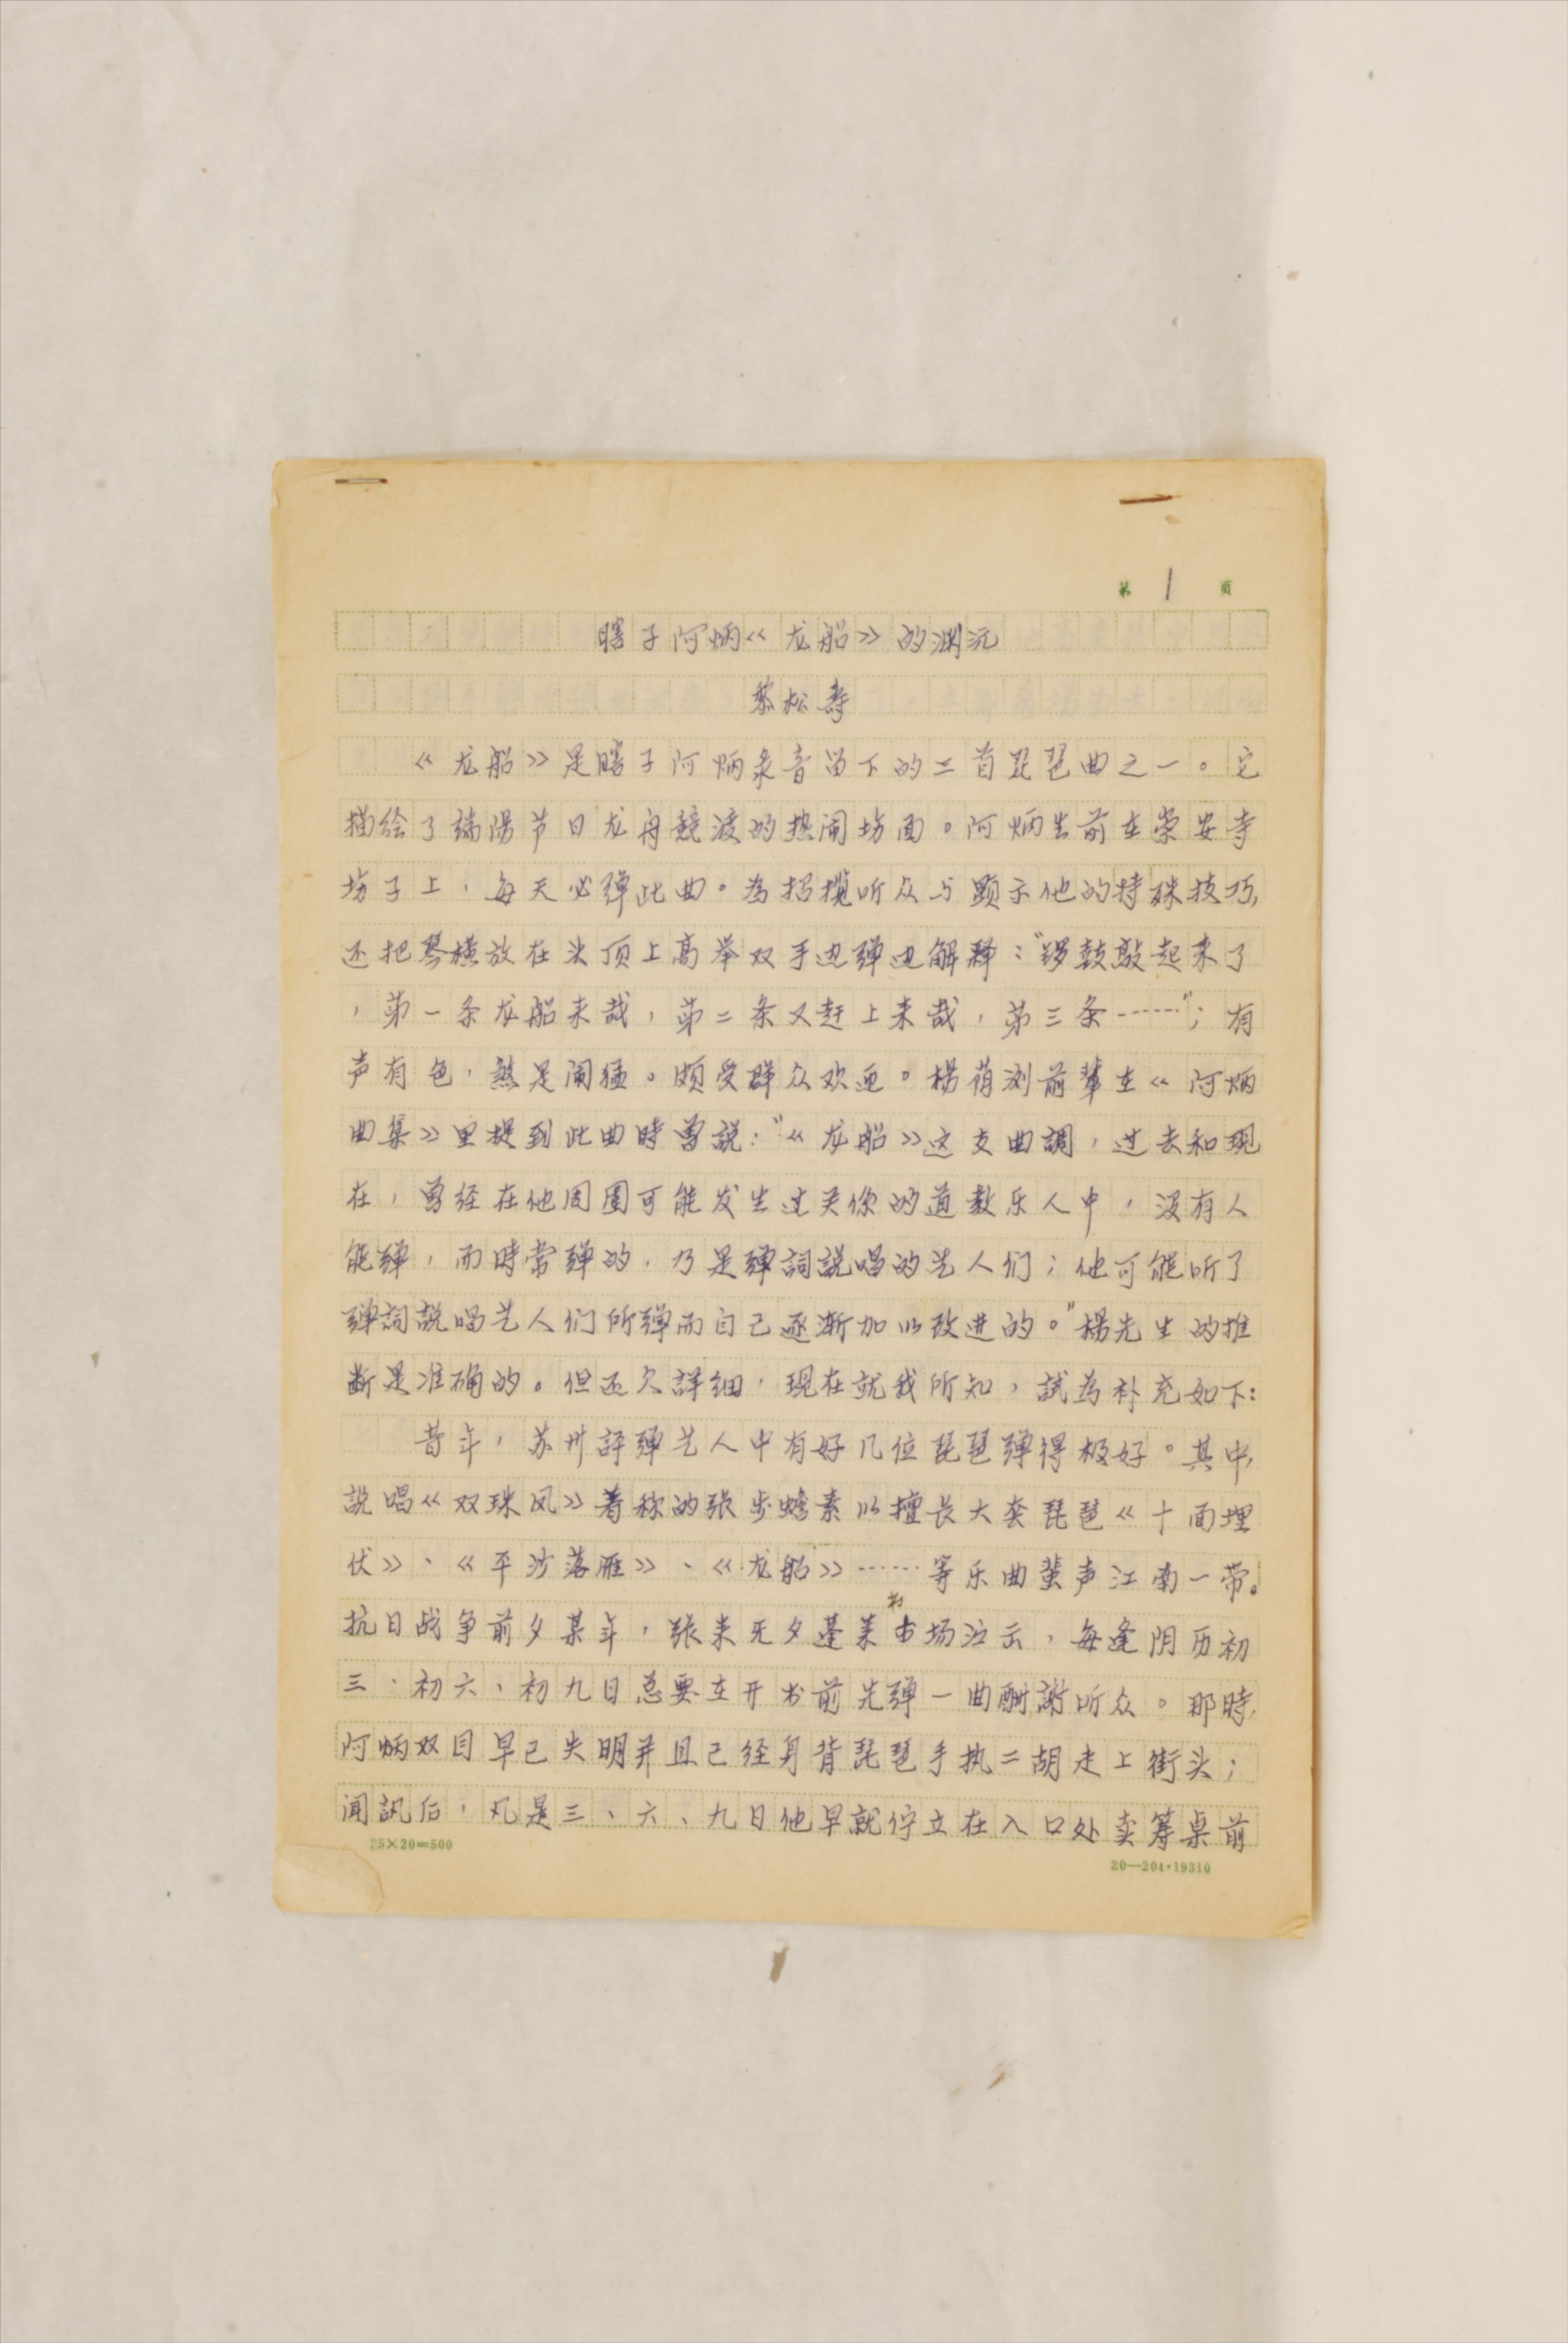 第 1 页
瞎子阿炳《龙船》的渊沅
黎松寿
《龙船》是瞎子阿炳录音留下的三首琵琶曲之一。它
描绘了端陽节日龙舟競渡的热闹场面。阿炳生前在崇安寺
场子上，每天必弹此曲。為招揽听众与顕示他的特殊技巧，
还把琴横放在头顶上高举双手边弹边解释："锣鼓敲起来了
，第一条龙船来哉，第二条又赶上来哉，第三条……"；有
声有色，煞是闹猛。颇受群众欢迎。楊荫浏前辈在《阿炳
曲集》里提到此曲時曾説："《龙船》这支曲調，过去和现
在，曾经在他周围可能发生过关係的道教乐人中，没有人
能弹，而時常弹的，乃是弹詞説唱的艺人们；他可能听了
弹詞説唱艺人们所弹而自己逐渐加以改进的。"楊先生的推
断是准确的。但还欠詳细，现在就我所知，試為补充如下：
昔年，苏州評弹艺人中有好几位琵琶弹得极好。其中，
説唱《双珠凤》著称的张步蟾素以擅长大套琵琶《十面埋
伏》、《平沙落雁》、《龙船》……等乐曲蜚声江南一带。
抗日战争前夕某年，张来无夕蓬莱书场泣云，每逢阴历初
三、初六、初九日总要在开书前先弹一曲酬謝听众。那時，
阿炳双目早已失明并且已经身背琵琶手执二胡走上街头；
闻訊后，凡是三、六、九日他早就佇立在入口处卖筹桌前
25×20=500
20—204·19310